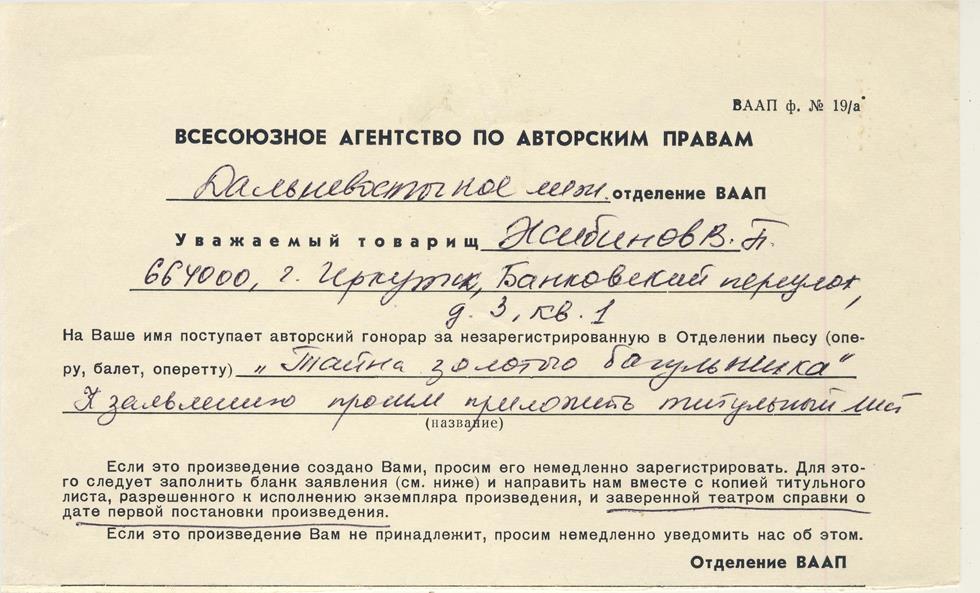 ВААП ф. № 19/а
ВСЕСОЮЗНОЕ АГЕНТСТВО ПО АВТОРСКИМ ПРАВАМ
Дальневосточное меж. отделение ВААП
Уважаемый товарищ Жибинов В. П.
664000, г. Иркутск, Банковский переулок,
д. 3, кв. 1
На Ваше имя поступает авторский гонорар за незарегистрированную в Отделении пьесу (опе-
ру, балет, оперетту) „Тайна золотого багульника“
К заявлению просим приложить титульный лист
(название)
Если это произведение создано Вами, просим его немедленно зарегистрировать. Для это-
го следует заполнить бланк заявления (см. ниже) и направить нам вместе с копией титульного
листа, разрешенного к исполнению экземпляра произведения, и заверенной театром справки о
дате первой постановки произведения.
Если это произведение Вам не принадлежит, просим немедленно уведомить нас об этом.
Отделение ВААП